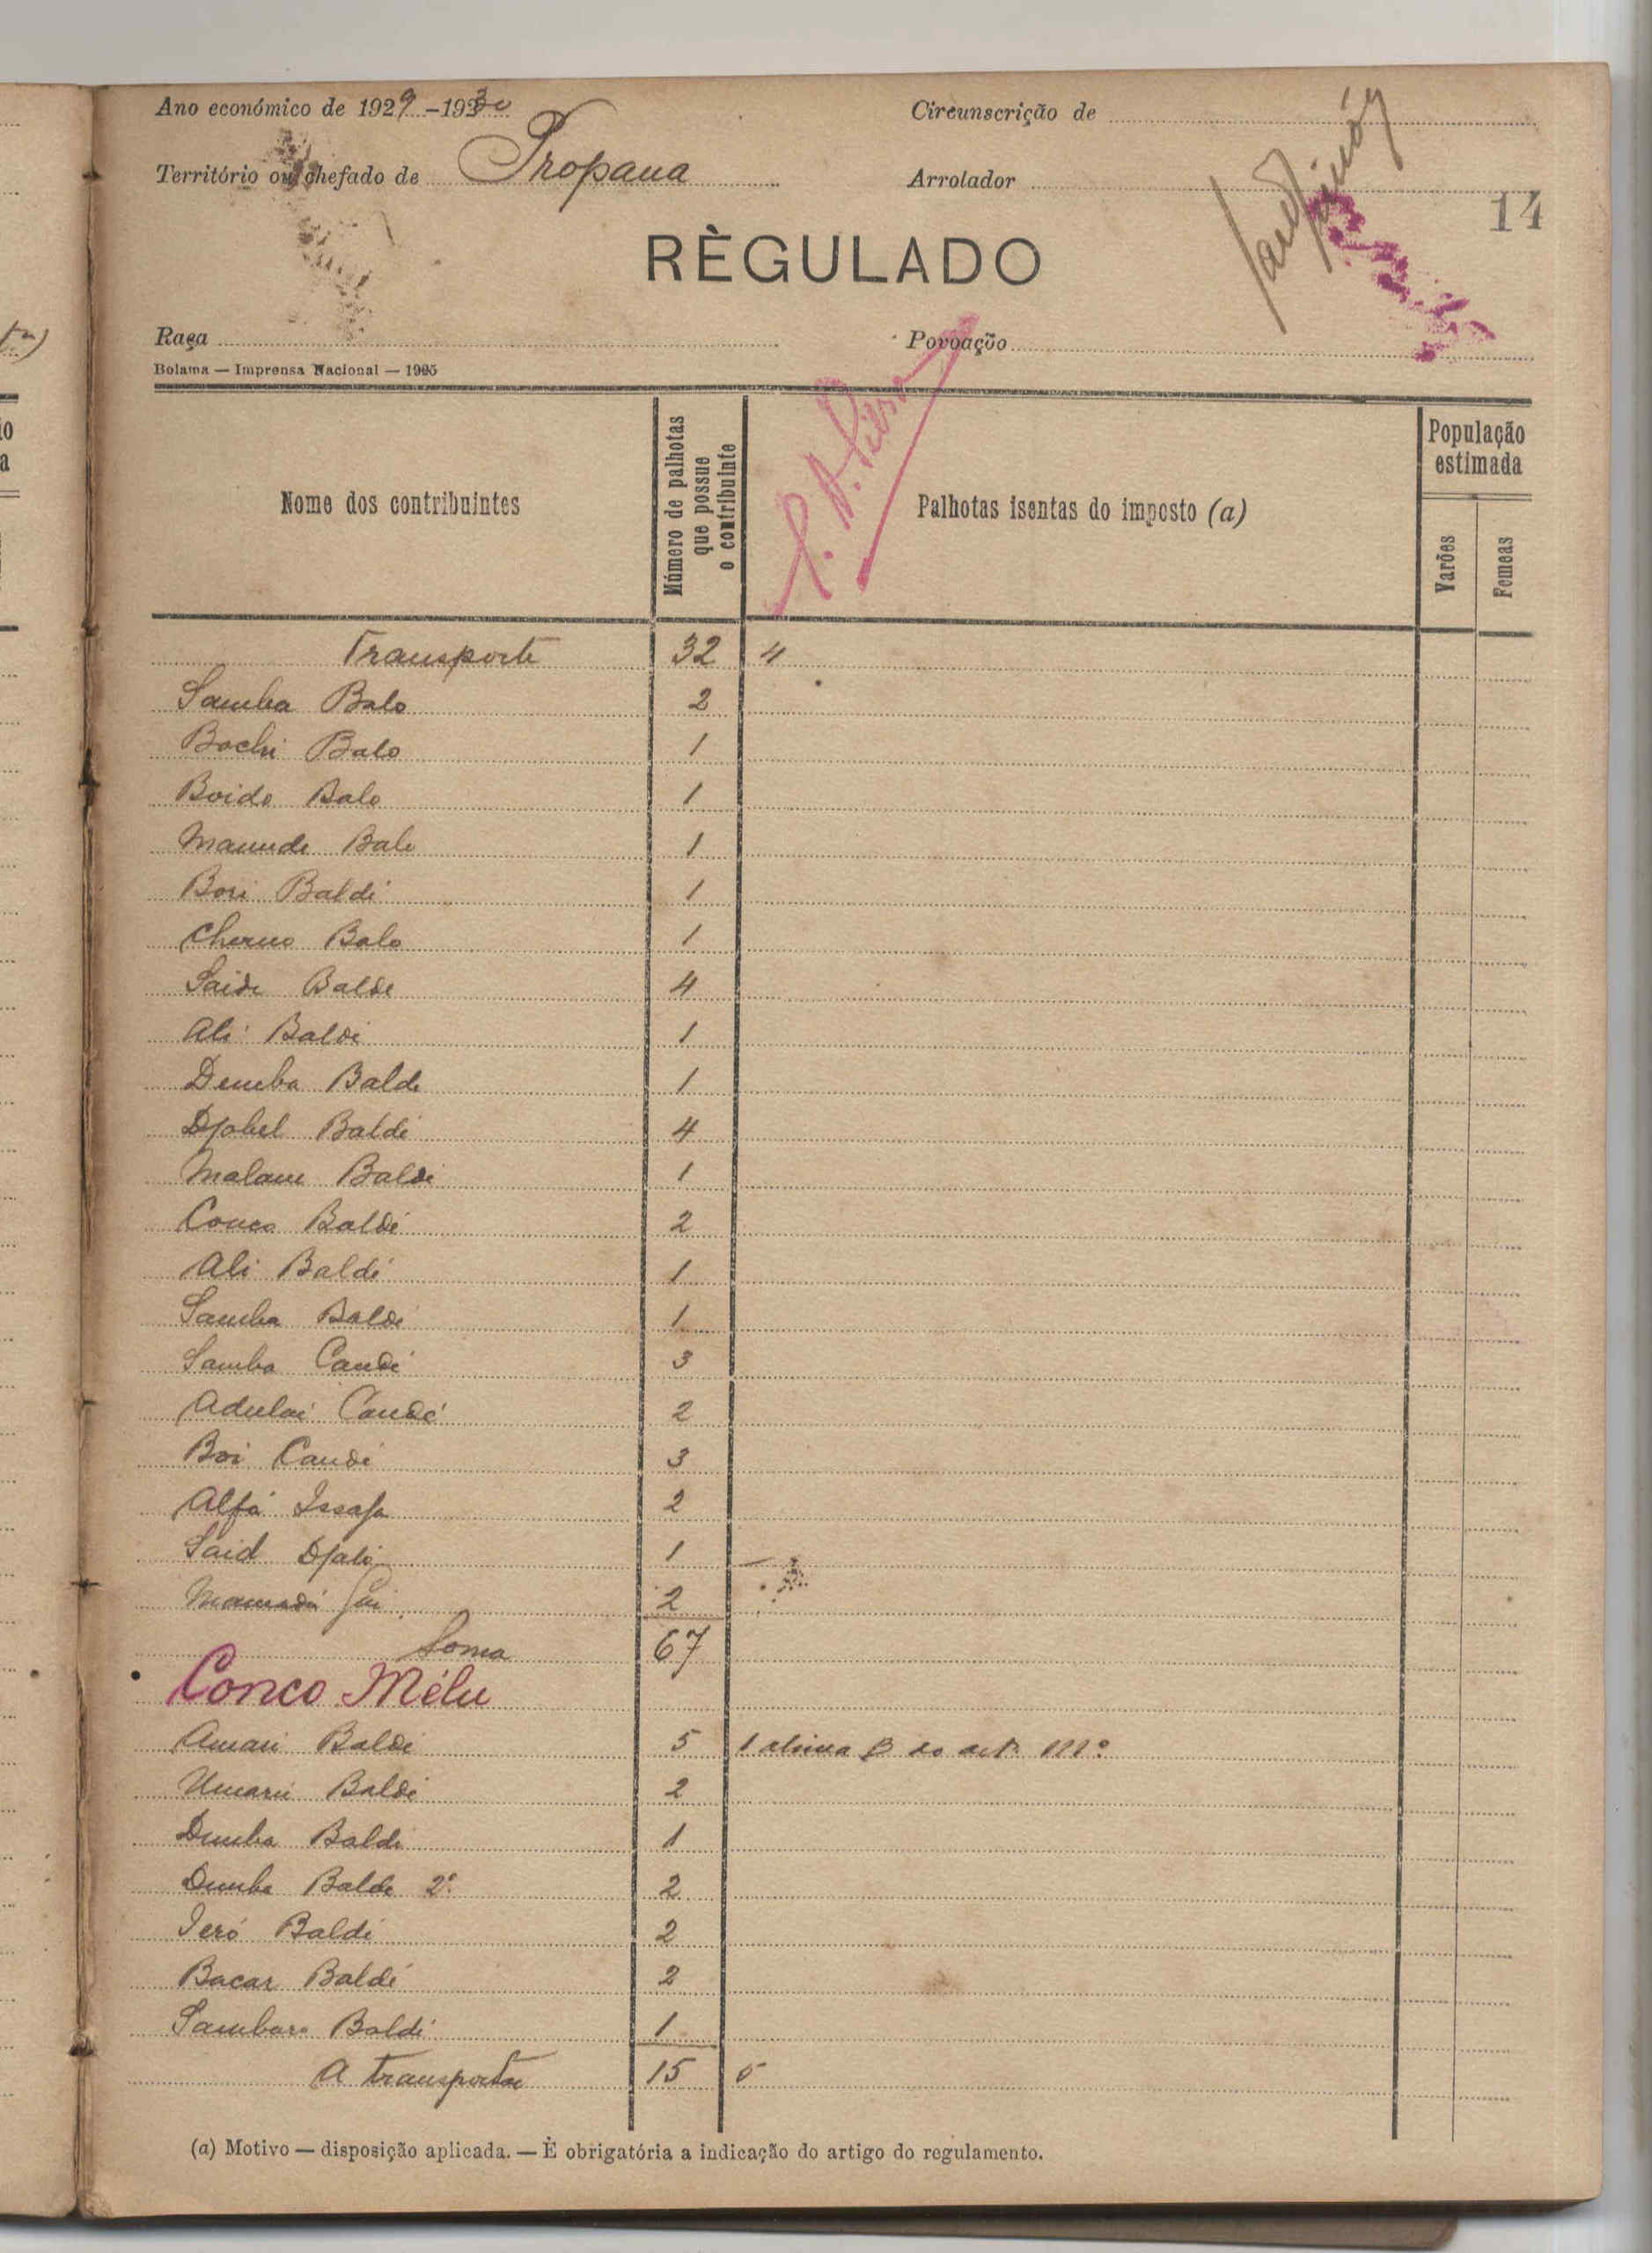 Ano económico de 1929-1930
Circunscrição de
Território ou chefado de Propana
Arrolador
14
RÈGULADO
Raça
Povoação
Bolama — Imprensa Nacional — 1925
Nome dos contribuintes
Número de palhotas que possue o contribuinte
Palhotas isentas do imposto (a)
População estimada
Varões
Femeas
Transporte 32 4
Samba Balo 2
Bochi Balo 1
Boido Balo 1
Mamude Balo 1
Bori Baldé 1
Cherno Balo 1
Saido Baldé 4
Ali Baldé 1
Demba Baldé 1
Djobel Baldé 4
Malam Baldé 1
Conco Baldé 2
Ali Baldé 1
Samba Baldé 1
Samba Candé 3
Adulai Candé 2
Boi Candé 3
Alfá Issafa 2
Said Djaló 1
Mamadú 2
Soma 67
Conco Mélu
Amari Baldé 5 1 alinea B do art. III.º
Umarú Baldé 2
Demba Baldé 1
Demba Baldé 2º 2
Jeró Baldé 2
Bacar Baldé 2
Sambaro Baldé 1
A transportar 15
(a) Motivo — disposição aplicada. — È obrigatória a indicação do artigo do regulamento.